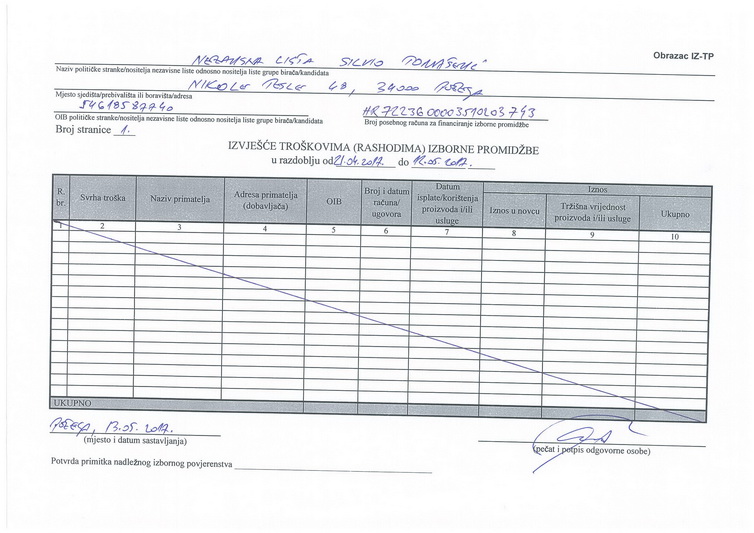 Obrazac IZ-TP
NEZAVISNA LISTA SILVIO TOMAŠEVIĆ
Naziv političke stranke/nositelja nezavisne liste odnosno nositelja liste grupe birača/kandidata
NIKOLE TESLE 48, 34000 POŽEGA
Mjesto sjedišta/prebivališta ili boravišta/adresa
54618587740 HR7223600003510203743
OIB političke stranke/nositelja nezavisne liste odnosno nositelja liste grupe birača/kandidata Broj posebnog računa za financiranje izborne promidžbe
Broj stranice 1.
IZVJEŠĆE TROŠKOVIMA (RASHODIMA) IZBORNE PROMIDŽBE
u razdoblju od 21.04.2017. do 12.05.2017.
R. br. Svrha troška Naziv primatelja Adresa primatelja (dobavljača) OIB Broj i datum računa/ugovora Datum isplate/korištenja proizvoda i/ili usluge Iznos
Iznos u novcu Tržišna vrijednost proizvoda i/ili usluge Ukupno
1 2 3 4 5 6 7 8 9 10
UKUPNO
POŽEGA, 13.05.2017.
(mjesto i datum sastavljanja) (pečat i potpis odgovorne osobe)
Potvrda primitka nadležnog izbornog povjerenstva